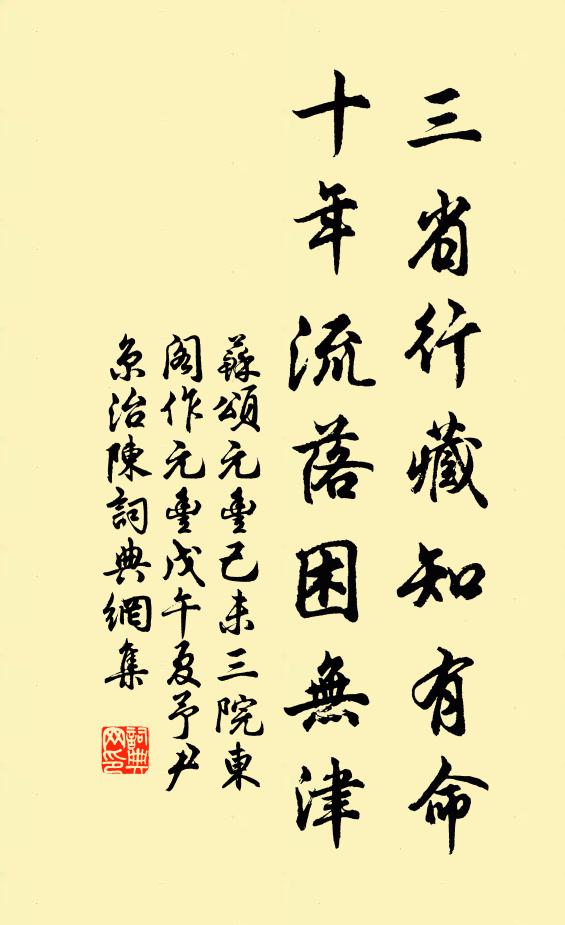 三省行藏知有命
十年流落困無津
蘇頌元豐己未三院東
閣作元豐戊午夏予尹
京治陳詞典網集
詞典網印